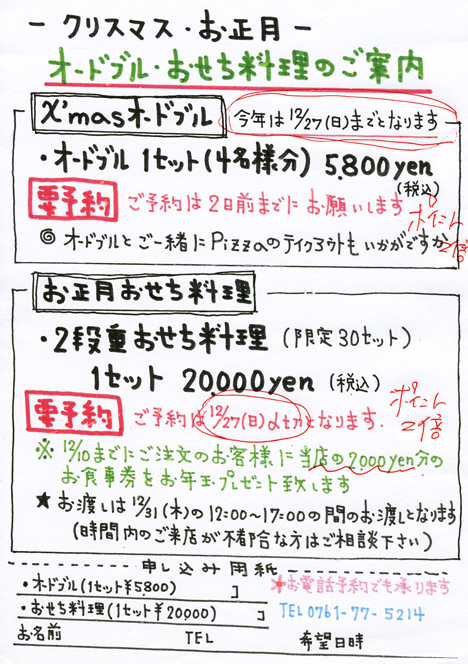 －クリスマス・お正月－
オードブル・おせち料理のご案内
X'masオードブル
今年は12/27(日)までとなります
・オードブル 1セット(4名様分) 5.800yen
(税込)
要予約 ご予約は2日前までにお願いします
ポイント
2倍
◎ オードブルとご一緒にPizzaのテイクアウトもいかがですか
お正月おせち料理
・2段重おせち料理 (限定30セット)
1セット 20,000yen (税込)
ポイント
2倍
要予約 ご予約は12/27(日)までとなります.
※ 12/10までにご注文のお客様に当店の2,000yen分の
お食事券をお年玉プレゼント致します
★ お渡しは12/31(木)の12:00～17:00の間のお渡しとなります
(時間内のご来店が不都合な方はご相談下さい)
申し込み用紙
・オードブル(1セット¥5800) コ
・おせち料理(1セット¥20,000) コ
★お電話予約でも承ります
TEL 0761-77-5214
お名前 TEL 希望日時